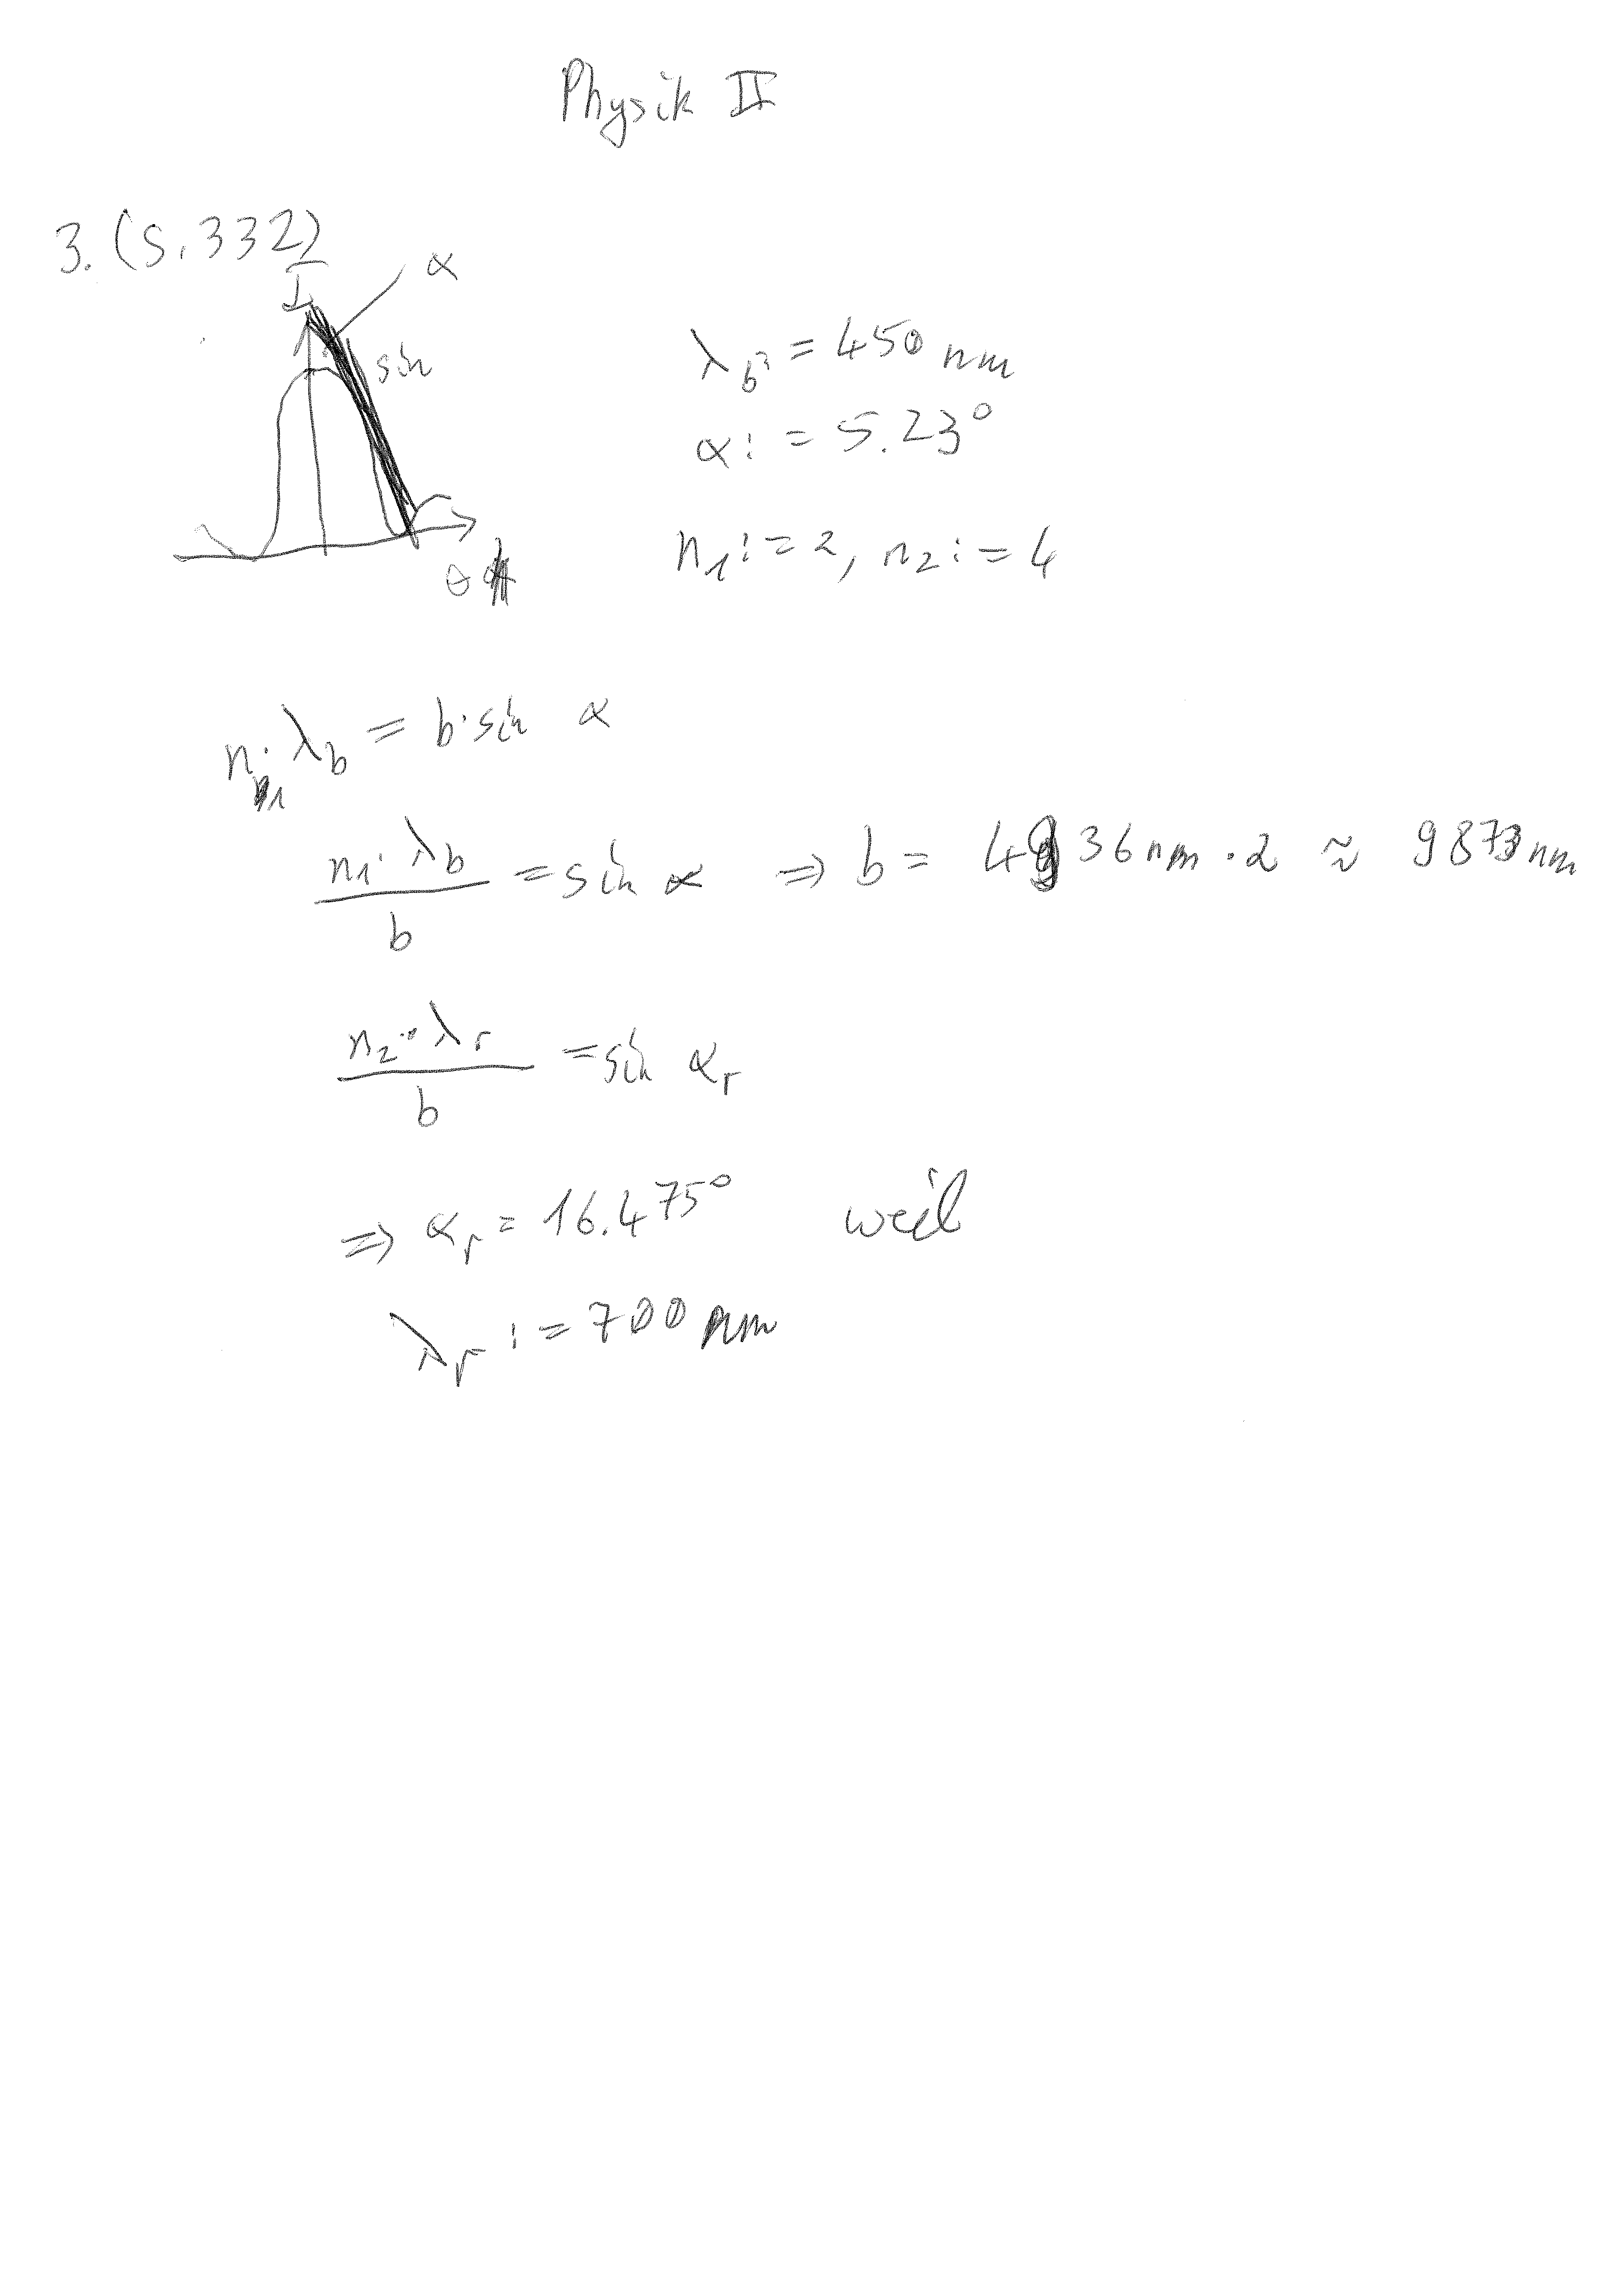 Physik II
3. (S. 332)
I
α
sin
θ
λ_b := 450 nm
α := 5.23°
n₁ := 2, n₂ := 4
n₁ · λ_b = b · sin α
n₁ · λ_b / b = sin α ⇒ b = 4936 nm · 2 ≈ 9873 nm
n₂ · λ_r / b = sin α_r
⇒ α_r = 16.475° weil
λ_r := 700 nm